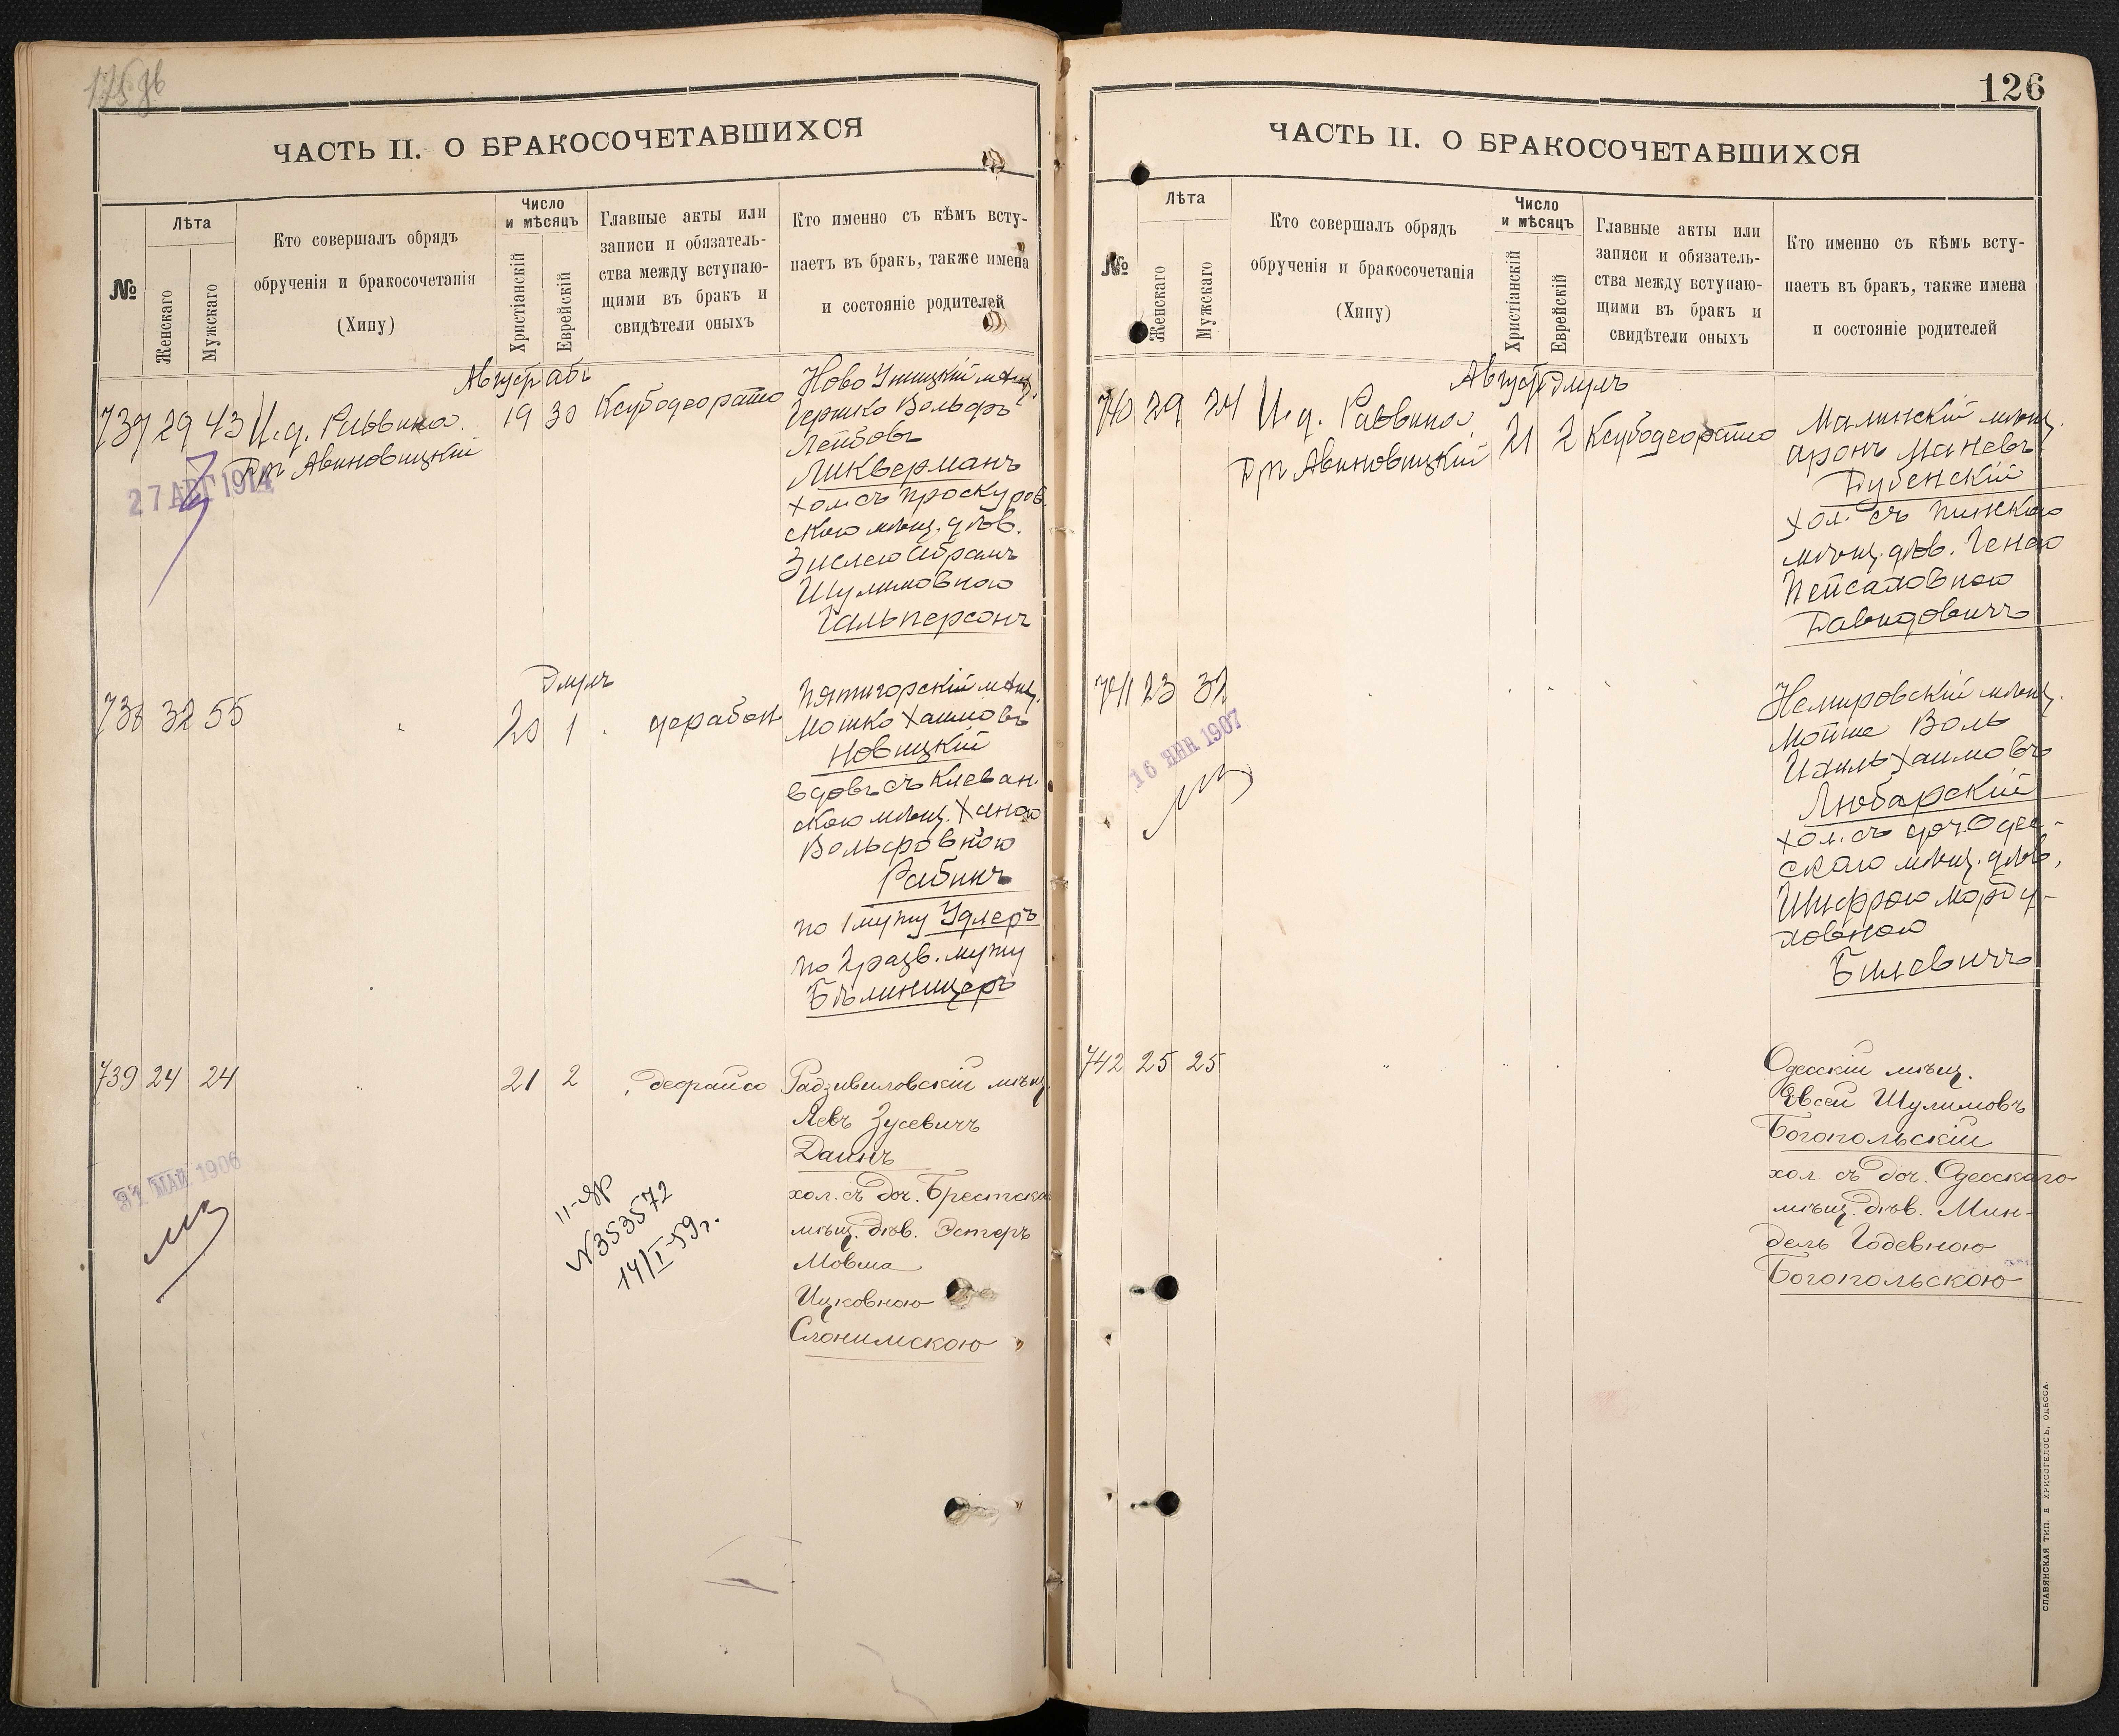 ЧАСТЬ II. О БРАКОСОЧЕТАВШИХСЯ
№
Лѣта
Женскаго
Мужскаго
Кто совершалъ обрядъ
обрученія и бракосочетанія
(Хипу)
Число
и мѣсяцъ
Христіанскій
Еврейскій
Главные акты или
записи и обязатель-
ства между вступаю-
щими въ бракъ и
свидѣтели оныхъ
Кто именно съ кѣмъ всту-
паетъ въ бракъ, также имена
и состояніе родителей
Август
737 29 43 И. д. Раввина
Авиновицкій
19 30
27 АВГ 1914
Ново Ушицкій мѣщ.
Гершко Вольфъ
Лейбовъ
Ликверманъ
хол. съ Проскуров
скою мѣщ. дѣв.
Зислею Абрамъ
Шулимовною
Гальперсонъ
Элулъ
738 32 55
20 1
Пятигорскій мѣщ.
Мошко Хаимовъ
Новицкій
вдовъ съ Клеван.
скою мѣщ. Ханою
Вольфовною
Рабинъ
по 1 мужу Удлеръ
по 2 разв. мужу
Бѣлиницеръ
739 24 24
21 2
Радзивиловскій мѣщ.
Левъ Зусевичъ
Даинъ
хол. съ доч. Брестска
мѣщ. дѣв. Эстеръ
Мовша
Ицковною
Слонимскою
МАЙ 1906
N 353572
14/I-59г.
126
ЧАСТЬ II. О БРАКОСОЧЕТАВШИХСЯ
№
Лѣта
Женскаго
Мужскаго
Кто совершалъ обрядъ
обрученія и бракосочетанія
(Хипу)
Число
и мѣсяцъ
Христіанскій
Еврейскій
Главные акты или
записи и обязатель-
ства между вступаю-
щими въ бракъ и
свидѣтели оныхъ
Кто именно съ кѣмъ всту-
паетъ въ бракъ, также имена
и состояніе родителей
Август Элулъ
740 29 24 И. д. Раввина
Авиновицкій
21 2
Малинскій мѣщ.
Аронъ Маневъ
Дубенскій
хол. съ Пинскою
мѣщ. дѣв. Генею
Пейсаховною
Давидовичъ
741 23 32
16 ЯНВ 1907
Немировскій мѣщ.
Мойше Воль
Ихиль Хаимовъ
Любарскій
хол. съ доч Одес-
скаго мѣщ. дѣв.
Шифрою Морду-
ховною
Билевичъ
742 25 25
Одесскій мѣщ.
Евсей Шулимовъ
Богопольскій
хол. съ доч. Одесскаго
мѣщ. дѣв. Мин-
дель Годевною
Богопольскою
СЛАВЯНСКАЯ ТИП. Е ХРИСОГЕЛОСЪ, ОДЕССА.